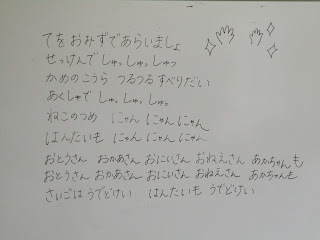 てを おみずで あらいましょ
せっけんで しゅっ しゅっ しゅっ
かめの こうら つるつる すべりだい
あくしゅで しゅっ しゅっ しゅっ
ねこのつめ にゃん にゃん にゃん
はんたいも にゃん にゃん にゃん
おとうさん おかあさん おにいさん おねえさん あかちゃんも
おとうさん おかあさん おにいさん おねえさん あかちゃんも
さいごは うでどけい はんたいも うでどけい